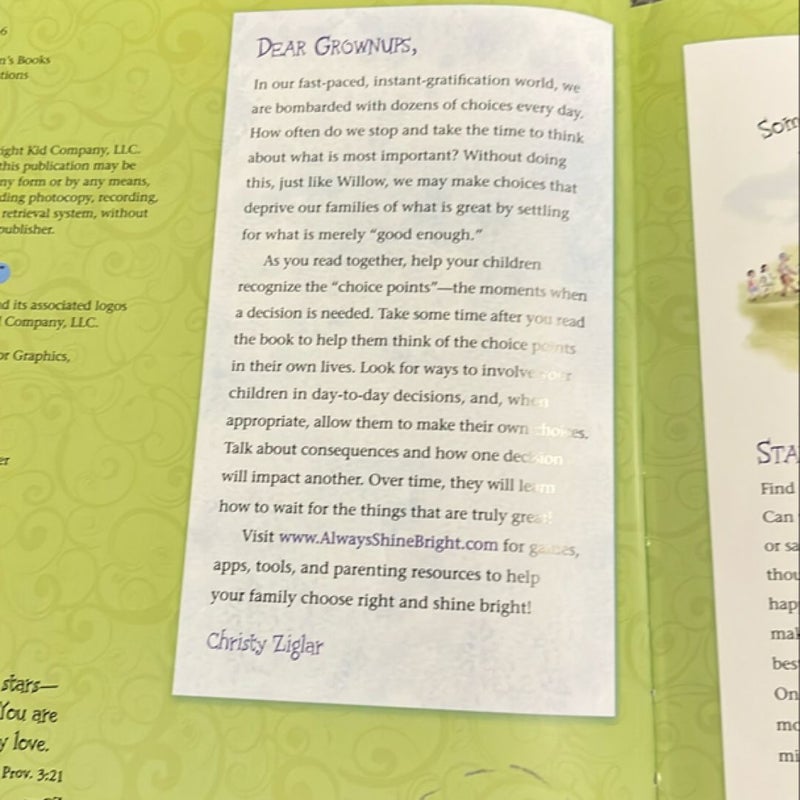 6
n's Books
tions
ight Kid Company, LLC.
this publication may be
ny form or by any means,
ding photocopy, recording,
retrieval system, without
publisher.
nd its associated logos
l Company, LLC.
or Graphics,
er
stars—
You are
y love.
Prov. 3:21
DEAR GROWNUPS,
In our fast-paced, instant-gratification world, we
are bombarded with dozens of choices every day.
How often do we stop and take the time to think
about what is most important? Without doing
this, just like Willow, we may make choices that
deprive our families of what is great by settling
for what is merely “good enough.”
As you read together, help your children
recognize the “choice points”—the moments when
a decision is needed. Take some time after you read
the book to help them think of the choice points
in their own lives. Look for ways to involve your
children in day-to-day decisions, and, when
appropriate, allow them to make their own choices.
Talk about consequences and how one decision
will impact another. Over time, they will learn
how to wait for the things that are truly great!
Visit www.AlwaysShineBright.com for games,
apps, tools, and parenting resources to help
your family choose right and shine bright!
Christy Ziglar
Som
STA
Find
Can
or sa
thou
hap
mak
best
On
mo
mi